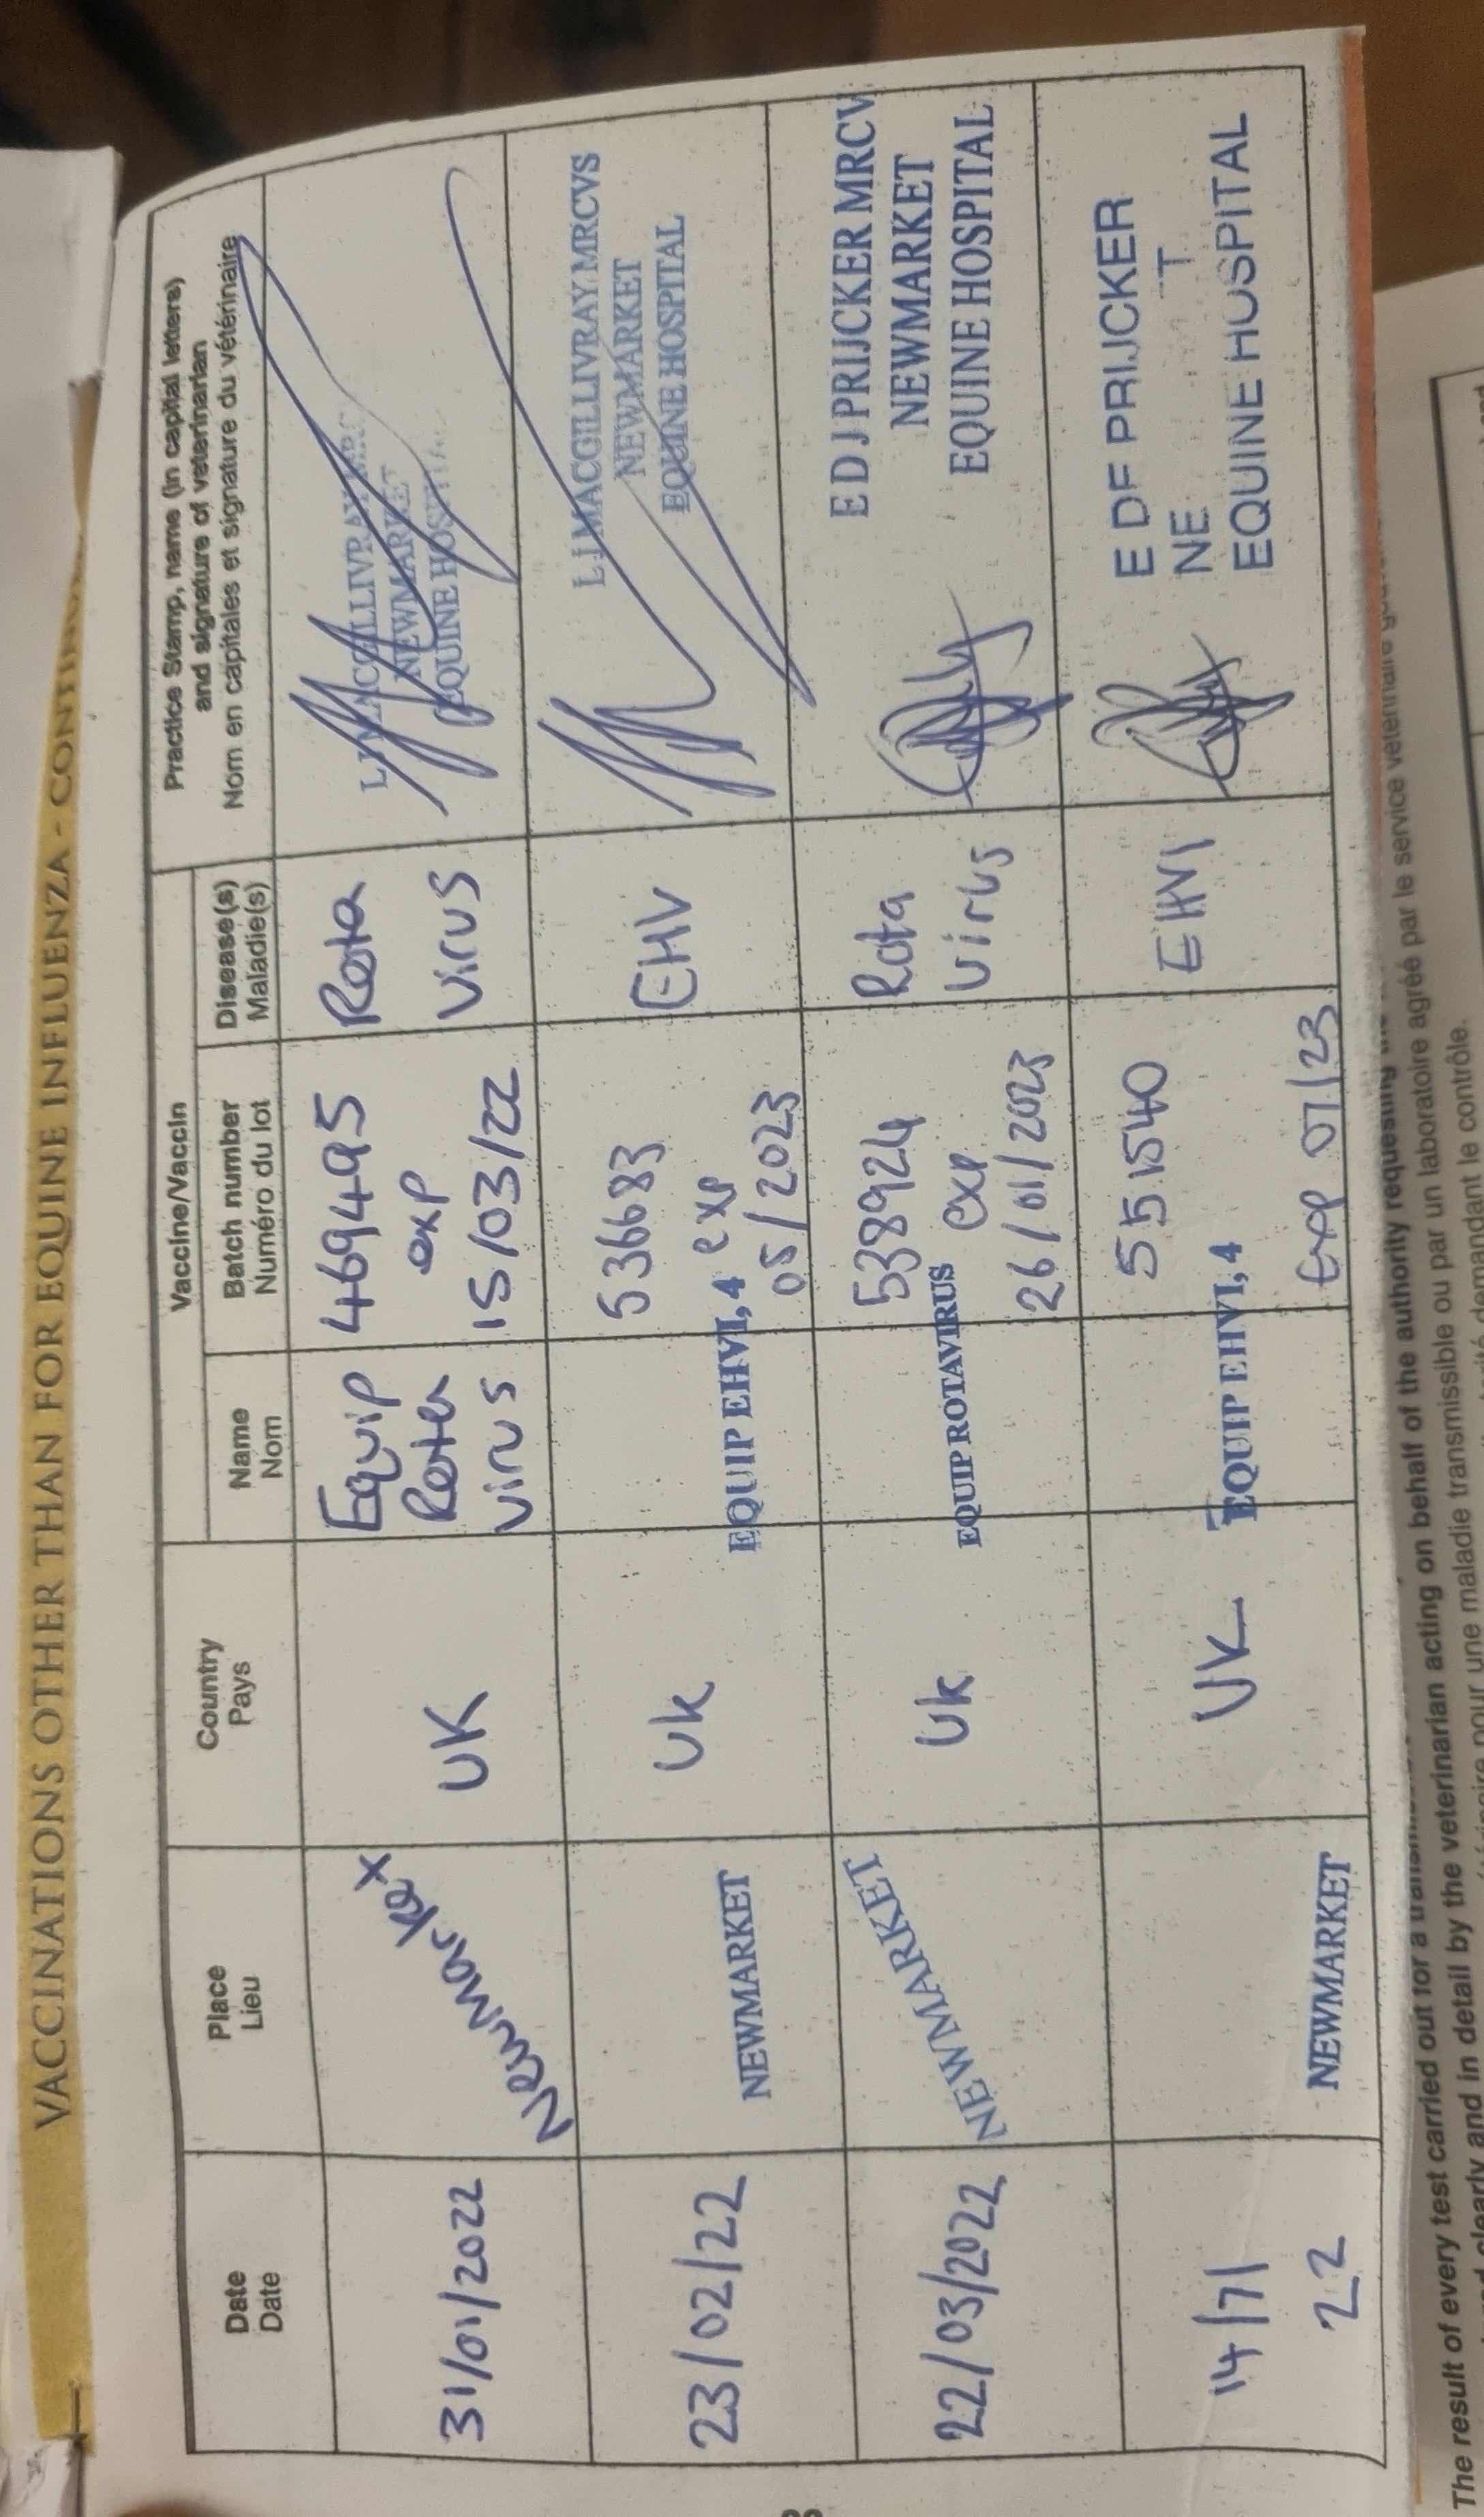 VACCINATIONS OTHER THAN FOR EQUINE INFLUENZA - CONTINU
Date
Date
Place
Lieu
Country
Pays
Vaccine/Vaccin
Name
Nom
Batch number
Numéro du lot
Disease(s)
Maladie(s)
Practice Stamp, name (in capital letters)
and signature of veterinarian
Nom en capitales et signature du vétérinaire
31/01/2022
Newmarket
UK
Equip
Rota
virus
469495
exp
15/03/22
Rota
virus
NEWMARKET
EQUINE HOSPITAL
23/02/22
NEWMARKET
Uk
EQUIP EHV1, 4
536683
exp
05/2023
EHV
L J MACGILLIVRAY MRCVS
NEWMARKET
EQUINE HOSPITAL
22/03/2022
NEWMARKET
Uk
EQUIP ROTAVIRUS
538924
exp
26/01/2023
Rota
virus
E D J PRIJCKER MRCV
NEWMARKET
EQUINE HOSPITAL
14/7/
22
NEWMARKET
UK
EQUIP EHV1, 4
551540
exp 07/23
EHV1
E DF PRIJCKER
NE T
EQUINE HOSPITAL
The result of every test carried out for a
acting on behalf of the authority requesting
clearly and in detail by the veterinarian acting on behalf of the authority requesting
pour une maladie transmissible ou par un laboratoire agréé par le service vétérinaire
demandant le contrôle.